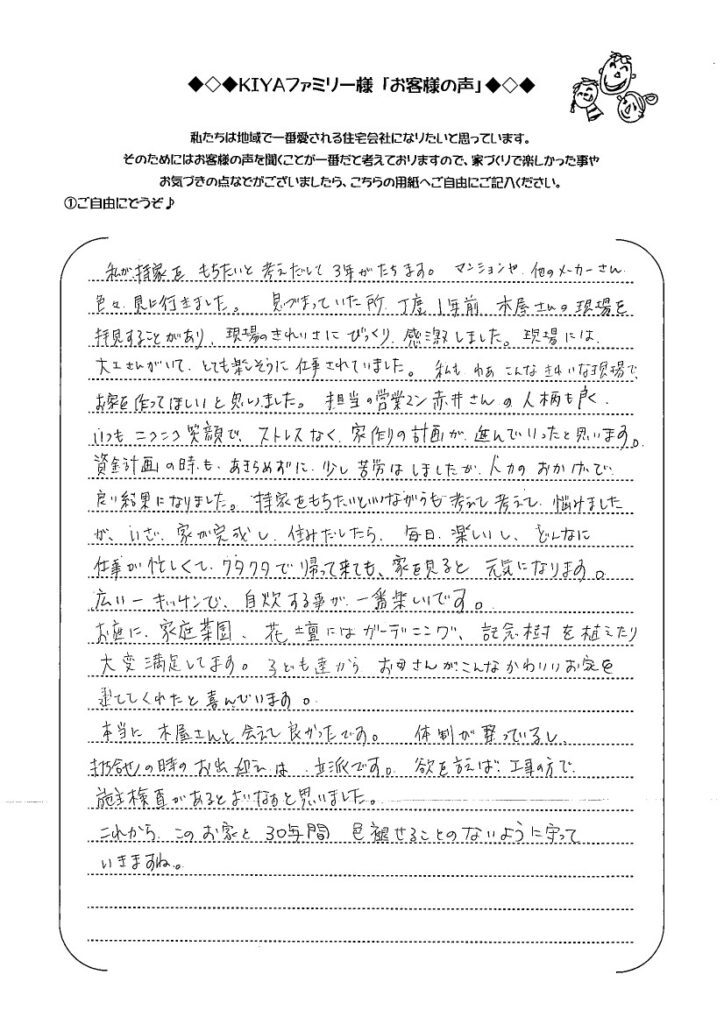 ◆◇◆KIYAファミリー様「お客様の声」◆◇◆
私たちは地域で一番愛される住宅会社になりたいと思っています。
そのためにはお客様の声を聞くことが一番だと考えておりますので、家づくりで楽しかった事や
お気づきの点などがございましたら、こちらの用紙へご自由にご記入ください。
①ご自由にどうぞ♪
私が持家を もちたいと考えだして3年がたちます。 マンションや、他のメーカーさん
色々、見に行きました。 見づまっていた所、丁度、1年前 木屋さんの現場を
拝見することがあり、現場のきれいさにびっくり、感激しました。現場には、
大工さんがいて、とても楽しそうに仕事されていました。 私も、わあ こんなきれいな現場で、
お家を作ってほしいと思いました。 担当の営業マン赤井さんの人柄も良く、
いつもニコニコ笑顔で、ストレスなく、家作りの計画が、進んでいったと思います。
資金計画の時も、あきらめずに、少し苦労はしましたが、人力のおかげで、
良い結果になりました。持家をもちたいといいながらも考えて考えて、悩みました
が、いざ、家が完成し、住みだしたら、 毎日、楽しいし、どんなに
仕事が忙しくて、クタクタで帰って来ても、家を見ると 元気になります。
広いーキッチンで、自炊する事が、一番楽しいです。
お庭に、家庭菜園、花壇にはガーデニング、記念樹を植えたり
大変満足してます。子ども達から お母さんがこんなかわいいお家を
建ててくれたと喜んでいます。
本当に 木屋さんと会えて良かったです。 体制が整っているし、
打合せの時のお出迎えは、立派です。欲を言えば、工事の方で、
施主検査があるとよいなぁと思いました。
これから、このお家と30年間 色褪せることのないように守って
いきますね。